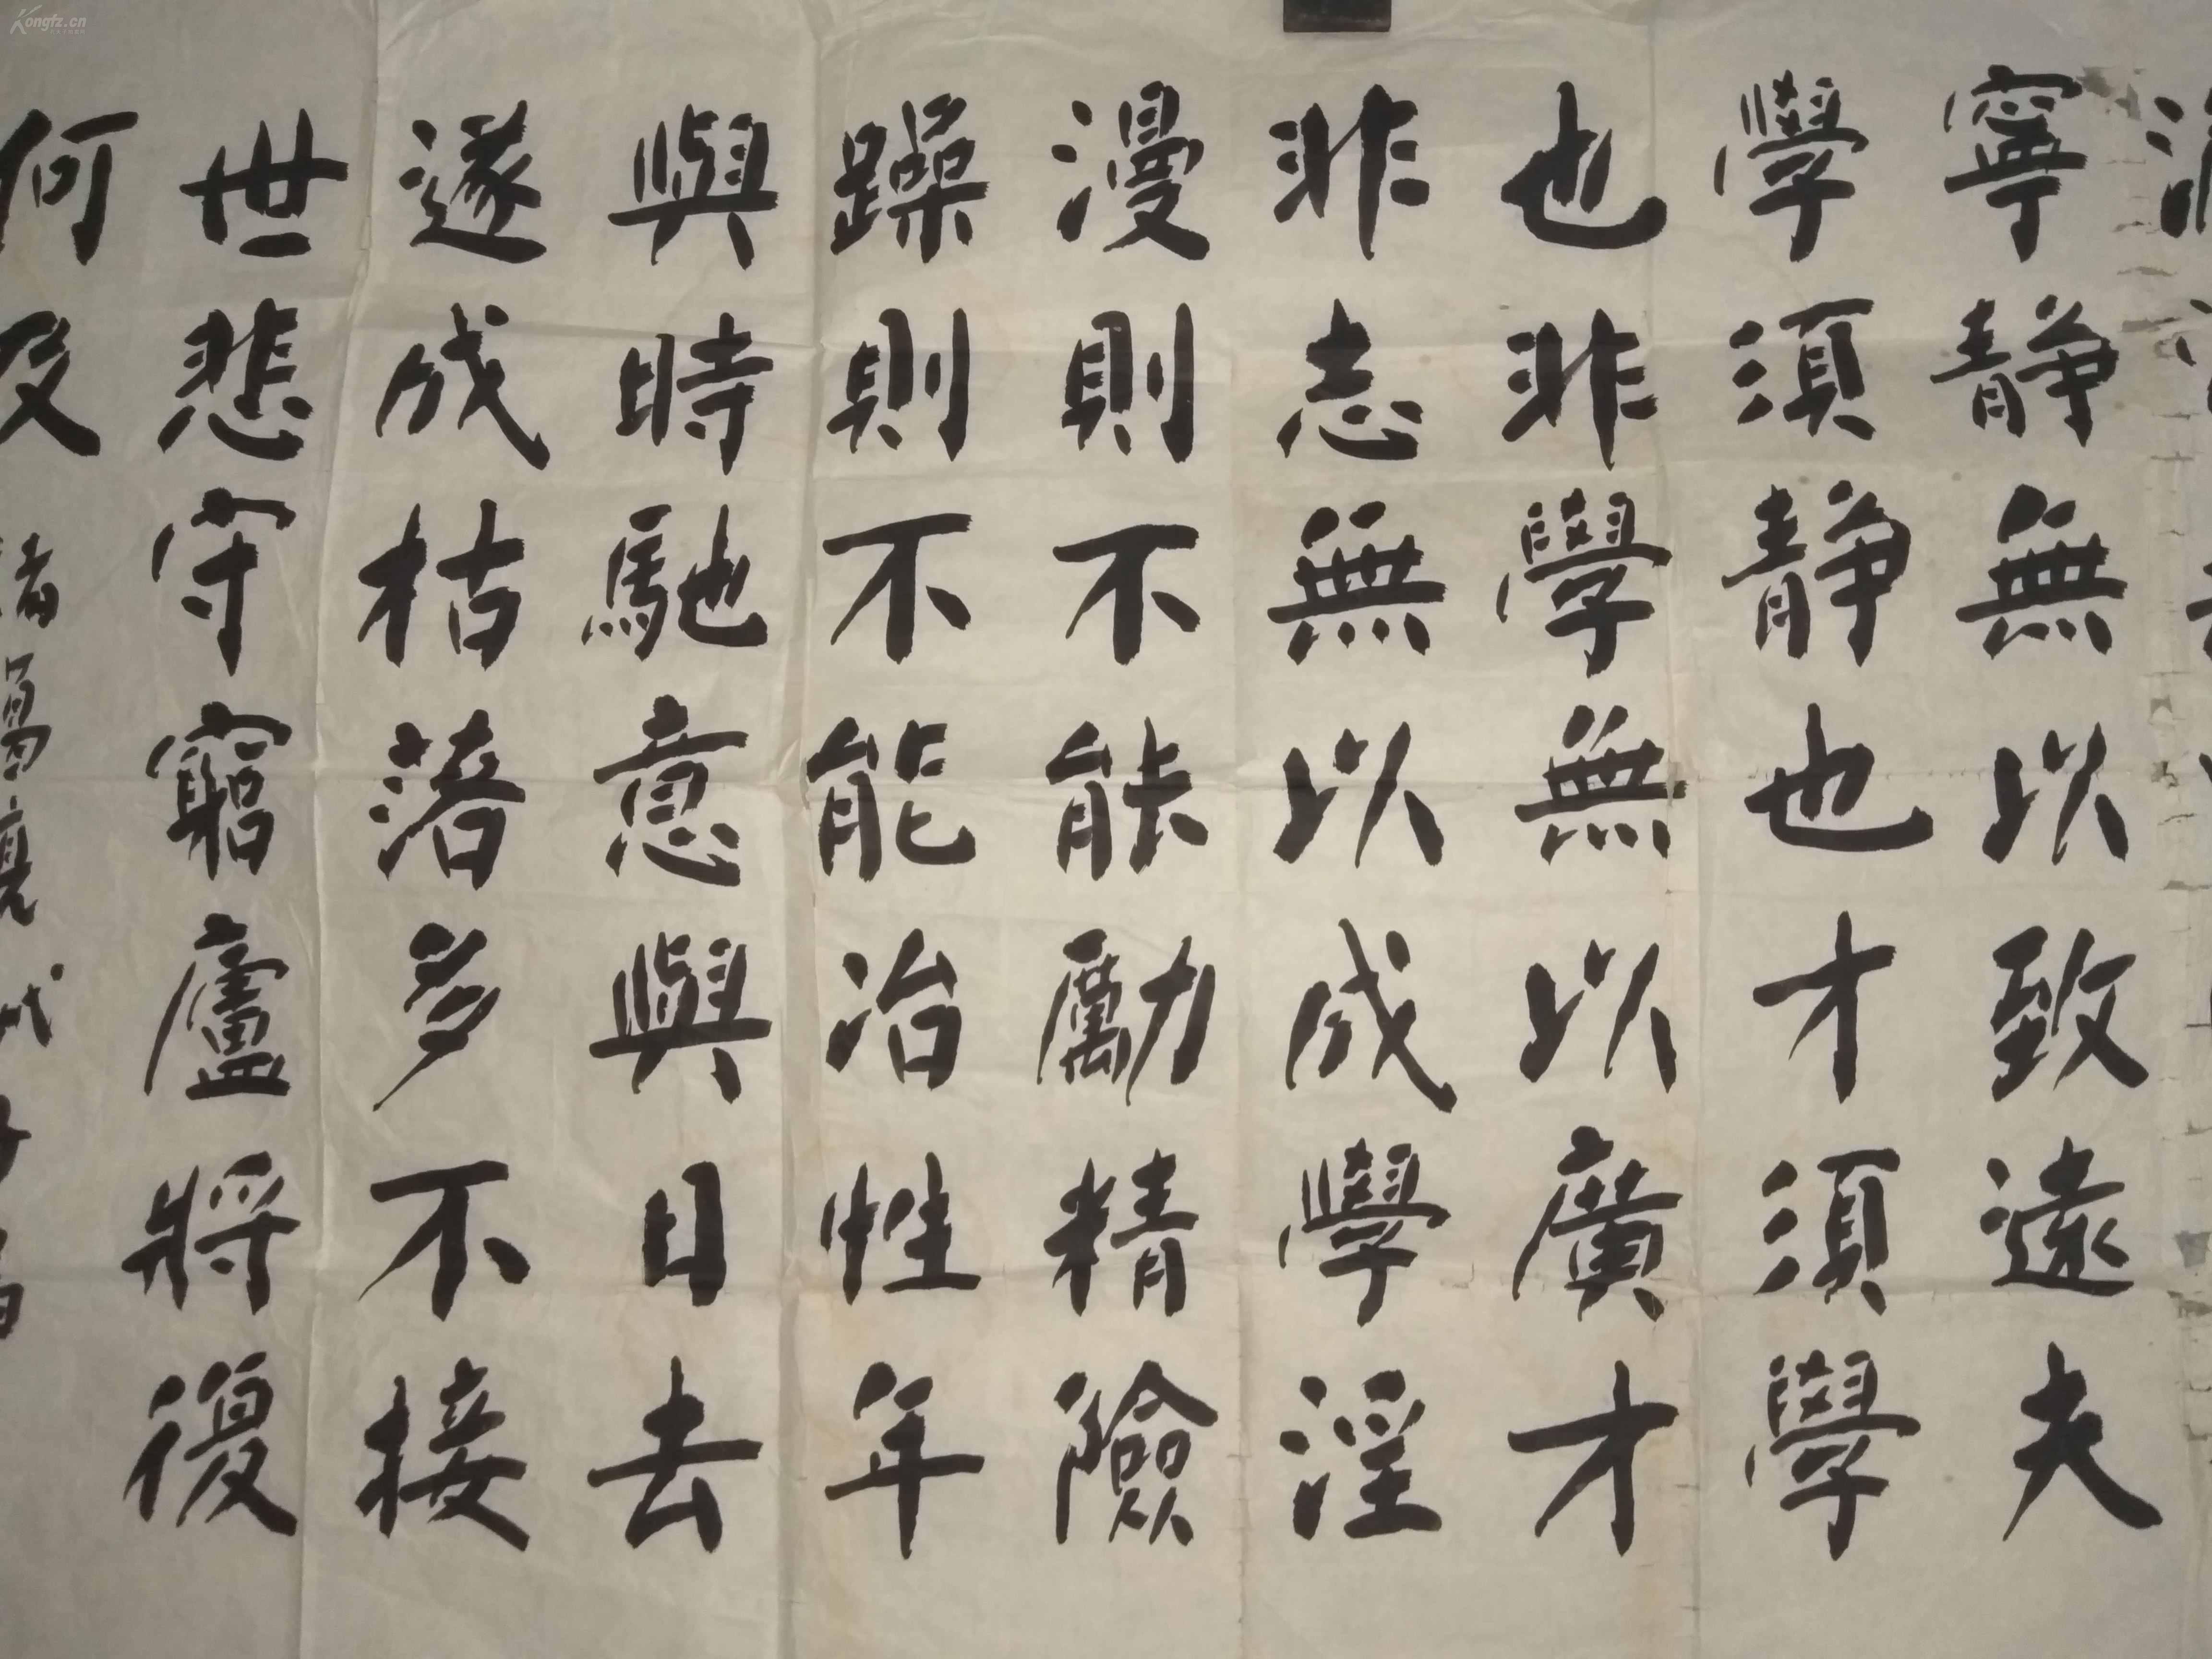 寧静無以致遠夫
學須静也才須學
也非學無以廣才
非志無以成學淫
漫則不能勵精險
躁則不能冶性年
與時馳意與日去
遂成枯落多不接
世悲守窮廬將復
何及
諸葛亮誡子書
Kongfz.cn